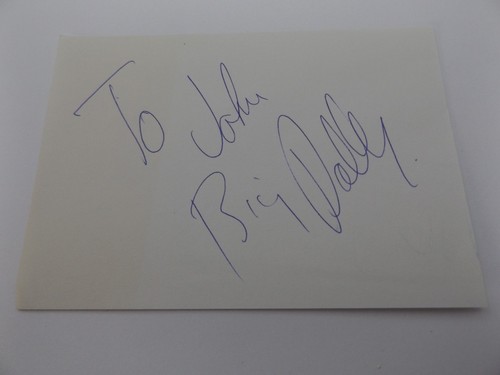 To John
Big Daddy.